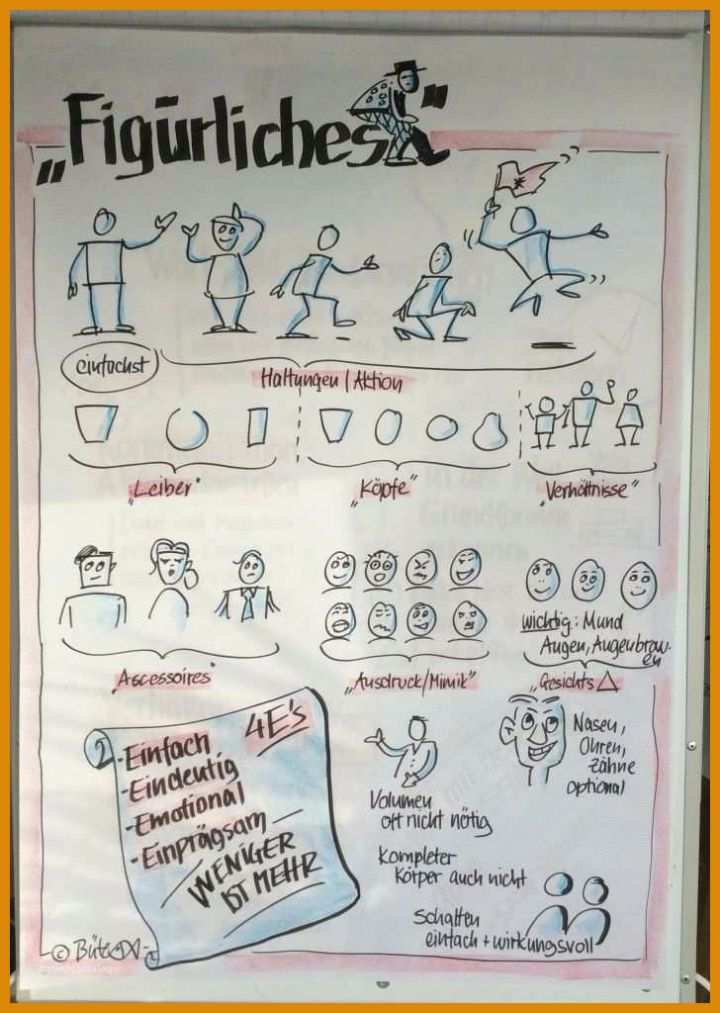 „Figürliches“
einfachst
Haltungen / Aktion
„Leiber“
„Köpfe“
„Verhältnisse“
wichtig: Mund
Augen, Augenbrau-
en
„Ascessoires“
„Ausdruck/Mimik“
„Gesichts △“
4E's
- Einfach
- Eindeutig
- Emotional
- Einprägsam
WENIGER
IST MEHR
Nasen,
Ohren,
Zähne
optional
Volumen
oft nicht nötig
Kompleter
Körper auch nicht
Schatten
einfach + wirkungsvoll